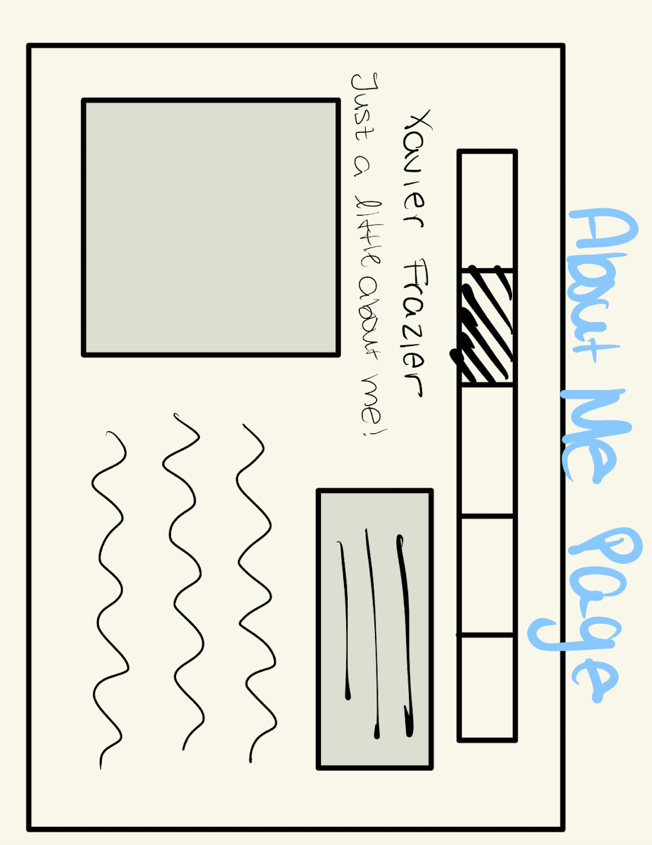 About Me Page
Xavier Frazier
Just a little about me!